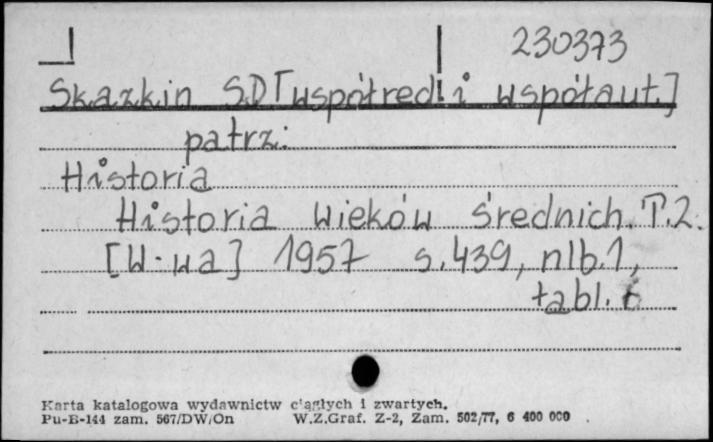 230373
Skazkin S.D [współred. i współaut.]
patrz:
Historia
Historia wieków średnich. T.2.
[W-wa] 1957 s. 439, nlb. 1,
tabl. 6
Karta katalogowa wydawnictw ciągłych i zwartych.
Pu-B-144 zam. 567/DW/On W.Z.Graf. Z-2, Zam. 502/77, 6 400 000